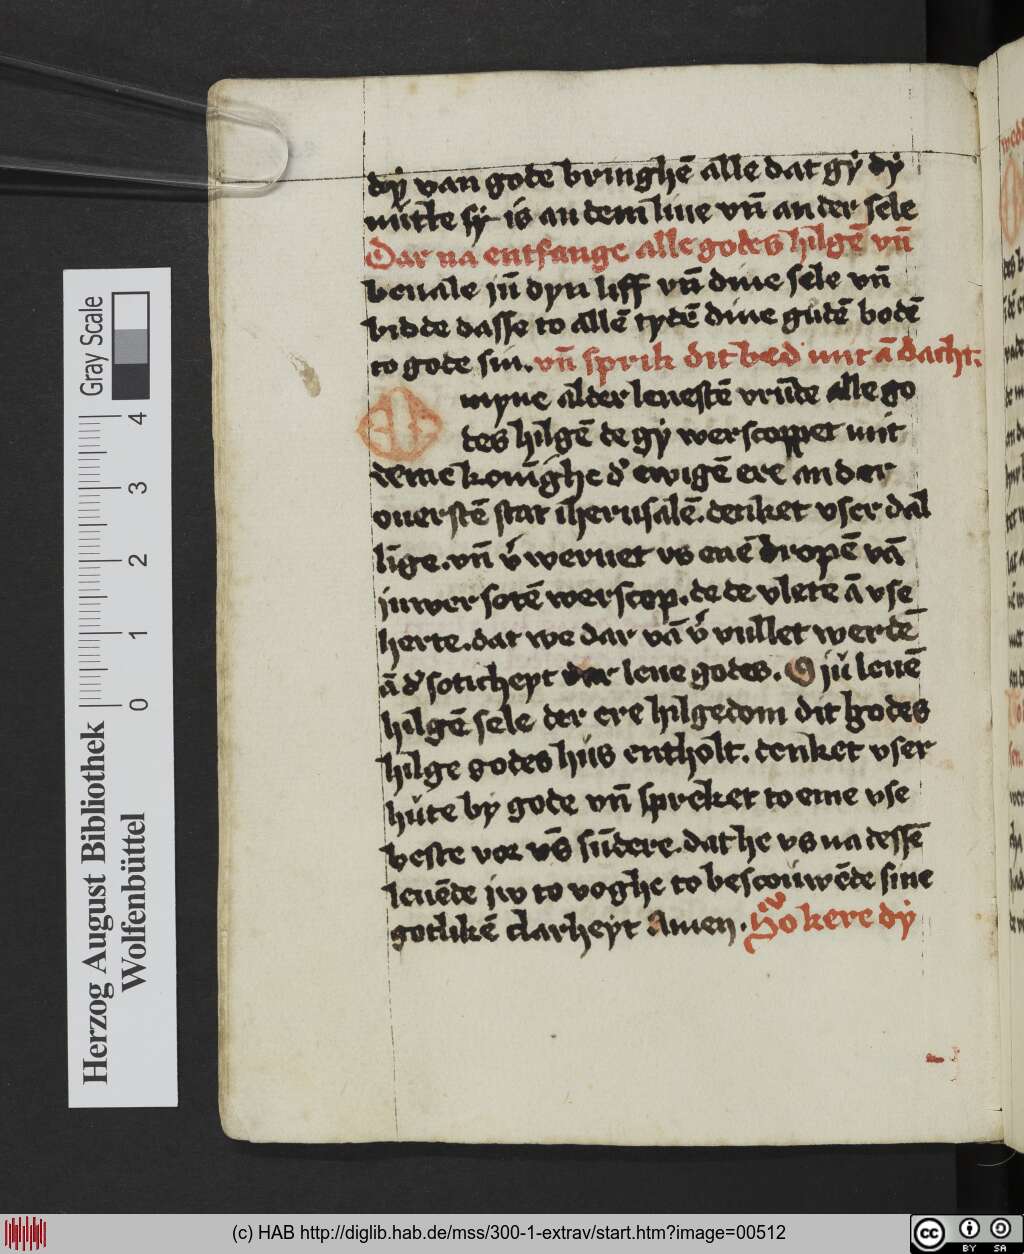 dy van gode bringhē alle dat gy dy
nutte sy is an dem liue vn̄ an der sele
Dar na entfange alle godes hilgē vn̄
beuale jū dyn liff vn̄ dine sele vn̄
bidde dasse to allē tydē dine gudē bodē
to gode sin. vn̄ sprik dit bed mit ā dacht.
O myne alder leuestē vrūde alle go
des hilgē de gy werscoppet mit
deme konīghe d' ewigē ere an der
ouerstē stat iherusalē. denket vser dal
līge. vn̄ v' weruet vs enē dropē vā
juwer sotē werscop. de de vlete ā vse
herte. dat we dar vā v' vullet werdē
ā d' soticheyt der leue godes. O jŭ leuē
hilgē sele der ere hilgedom dit godes
hilge godes hus entholt. denket vser
hute by gode vn̄ spreket to eme vse
beste vor vs sūdere. dat he vs na dessē
leuēde jw to voghe to bescouwēde sine
gotlikē clarheyt Amen. So kere dy
Herzog August Bibliothek
Wolfenbüttel
Gray Scale
0 1 2 3 4
(c) HAB http://diglib.hab.de/mss/300-1-extrav/start.htm?image=00512
cc BY SA